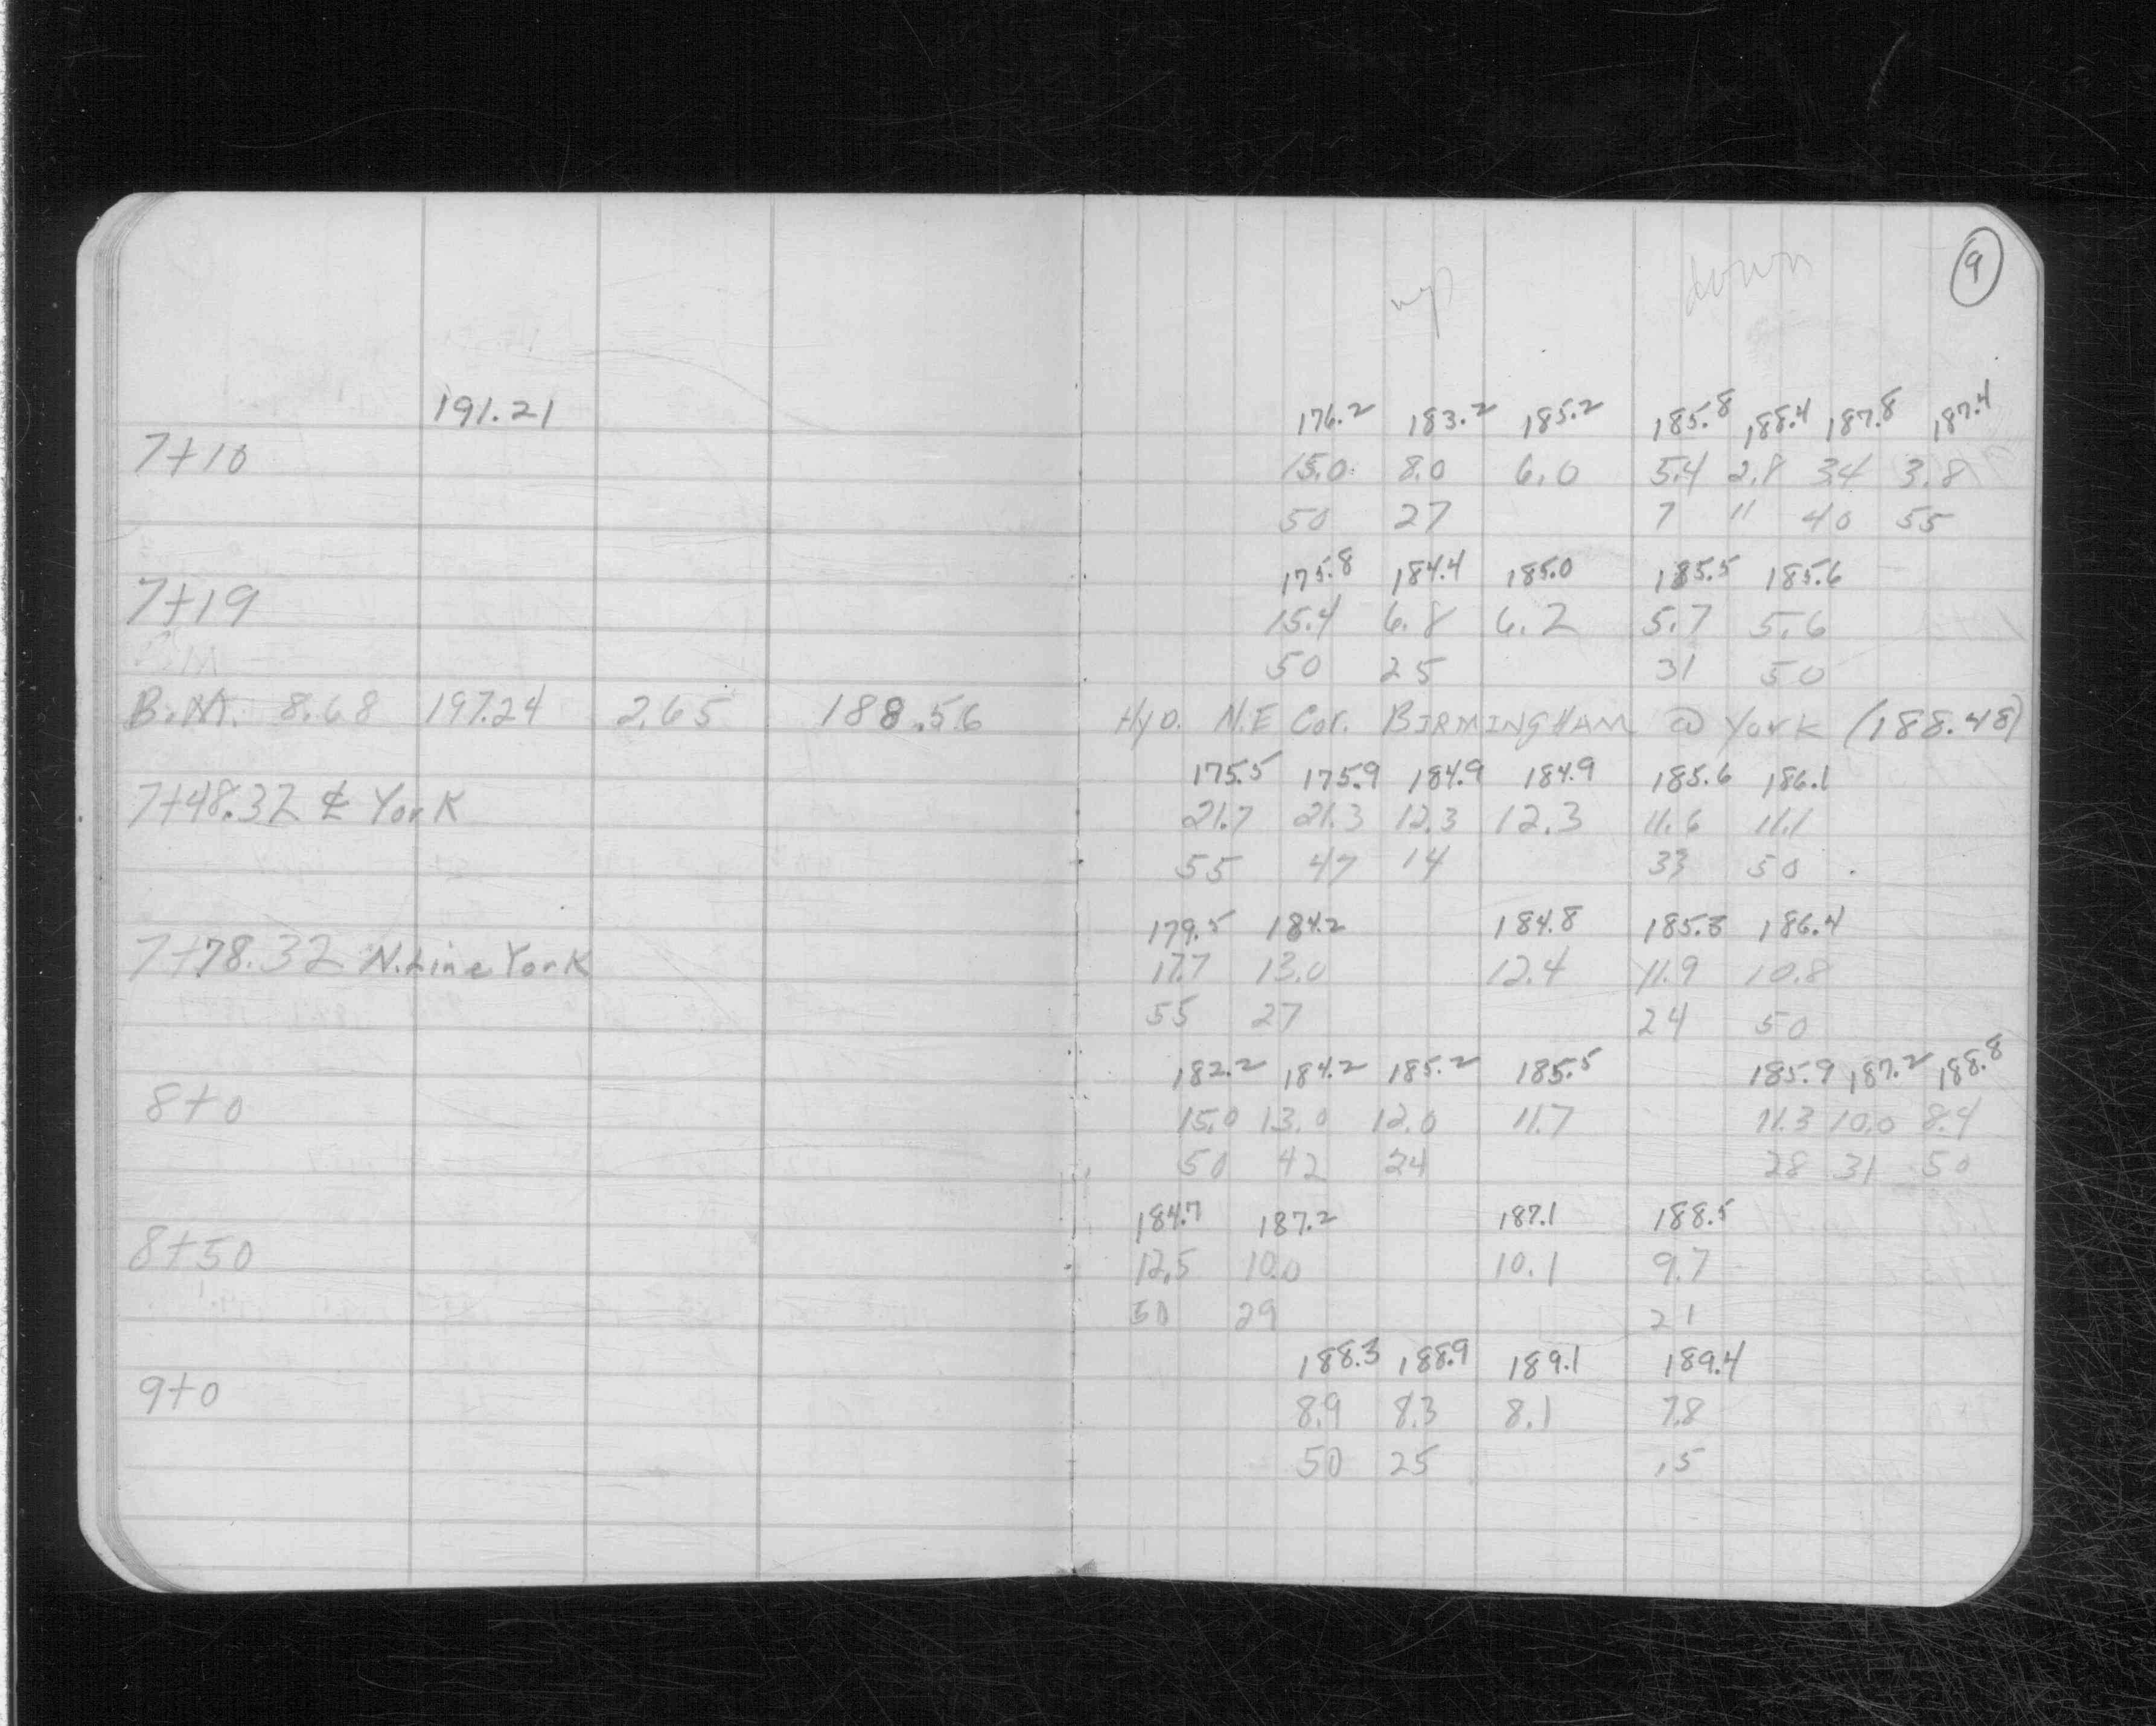 9
up down
191.21 176.2 183.2 185.2 185.8 188.4 187.8 187.4
7+10 15.0 8.0 6.0 5.4 2.8 3.4 3.8
50 27 7 11 40 55
175.8 184.4 185.0 185.5 185.6
7+19 15.4 6.8 6.2 5.7 5.6
BM 50 25 31 50
B.M. 8.68 197.24 2.65 188.56 Hyd. N.E Cor. BIRMINGHAM @ York (188.48)
175.5 175.9 184.9 184.9 185.6 186.1
7+48.32 ₵ York 21.7 21.3 12.3 12.3 11.6 11.1
55 47 14 33 50
179.5 184.2 184.8 185.3 186.4
7+78.32 N.Line York 17.7 13.0 12.4 11.9 10.8
55 27 24 50
182.2 184.2 185.2 185.5 185.9 187.2 188.8
8+0 15.0 13.0 12.0 11.7 11.3 10.0 8.4
50 42 24 28 31 50
184.7 187.2 187.1 188.5
8+50 12.5 10.0 10.1 9.7
50 29 21
188.3 188.9 189.1 189.4
9+0 8.9 8.3 8.1 7.8
50 25 15